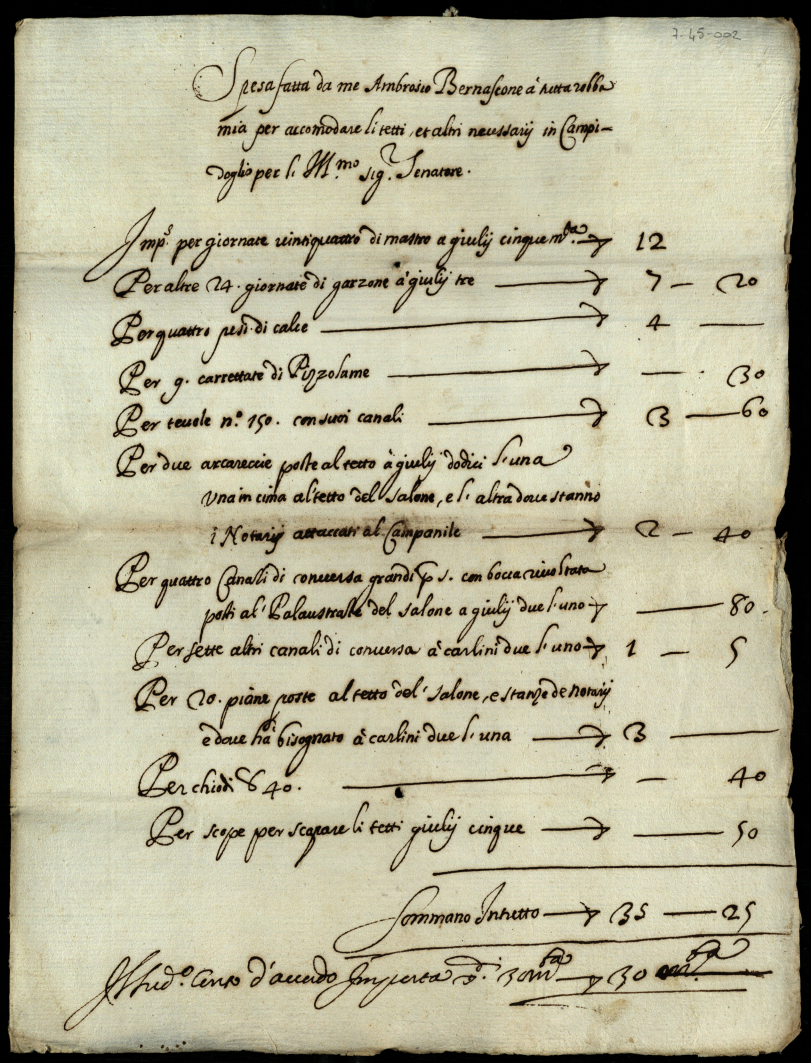 7-45-002
Spesa fatta da me Ambrosio Bernascone à tutta robba
mia per accomodare li tetti, et altri necessarij in Campi-
doglio per l' Ill.mo sig.r Senatore.
Imp.s per giornate vintiquattro di mastro a giulij cinque m.ta 12
Per altre 24. giornate di garzone à giulij tre 7 - 20
Per quattro pesi di calce 4 —
Per 9. carrettate di Pizzolame — 30
Per tevole n.o 150. con suoi canali 3 — 60
Per due arcareccie poste al tetto à giulij dodici l'una
Una in cima al tetto del salone, e l'altra dove stanno
i Notarij attaccati al Campanile 2 - 40
Per quattro Canali di conversa grandi con bocca rivoltata
posti al' Palaustrate del salone a giulij due l'uno — 80.
Per sette altri canali di conversa à carlini due l'uno 1 — 5
Per 20. piane poste al tetto del' salone, e stanze de notarij
e dove hà bisognato à carlini due l'una 3 —
Per chiodi 40. — 40
Per scope per scopare li tetti giulij cinque — 50
Sommano In tutto 35 — 25
d'accordo Importa 30 m.ta 30 m.ta